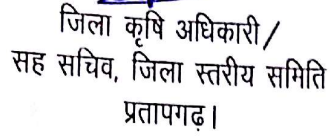 जिला कृषि अधिकारी/
सह सचिव, जिला स्तरीय समिति
प्रतापगढ़।